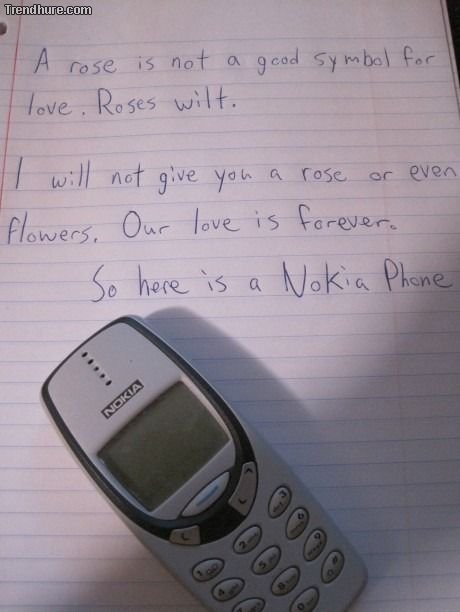 Trendhure.com
A rose is not a good symbol for
love. Roses wilt.
I will not give you a rose or even
flowers. Our love is forever.
So here is a Nokia Phone
NOKIA
C
1
2
3
4
5
6
7
8
9